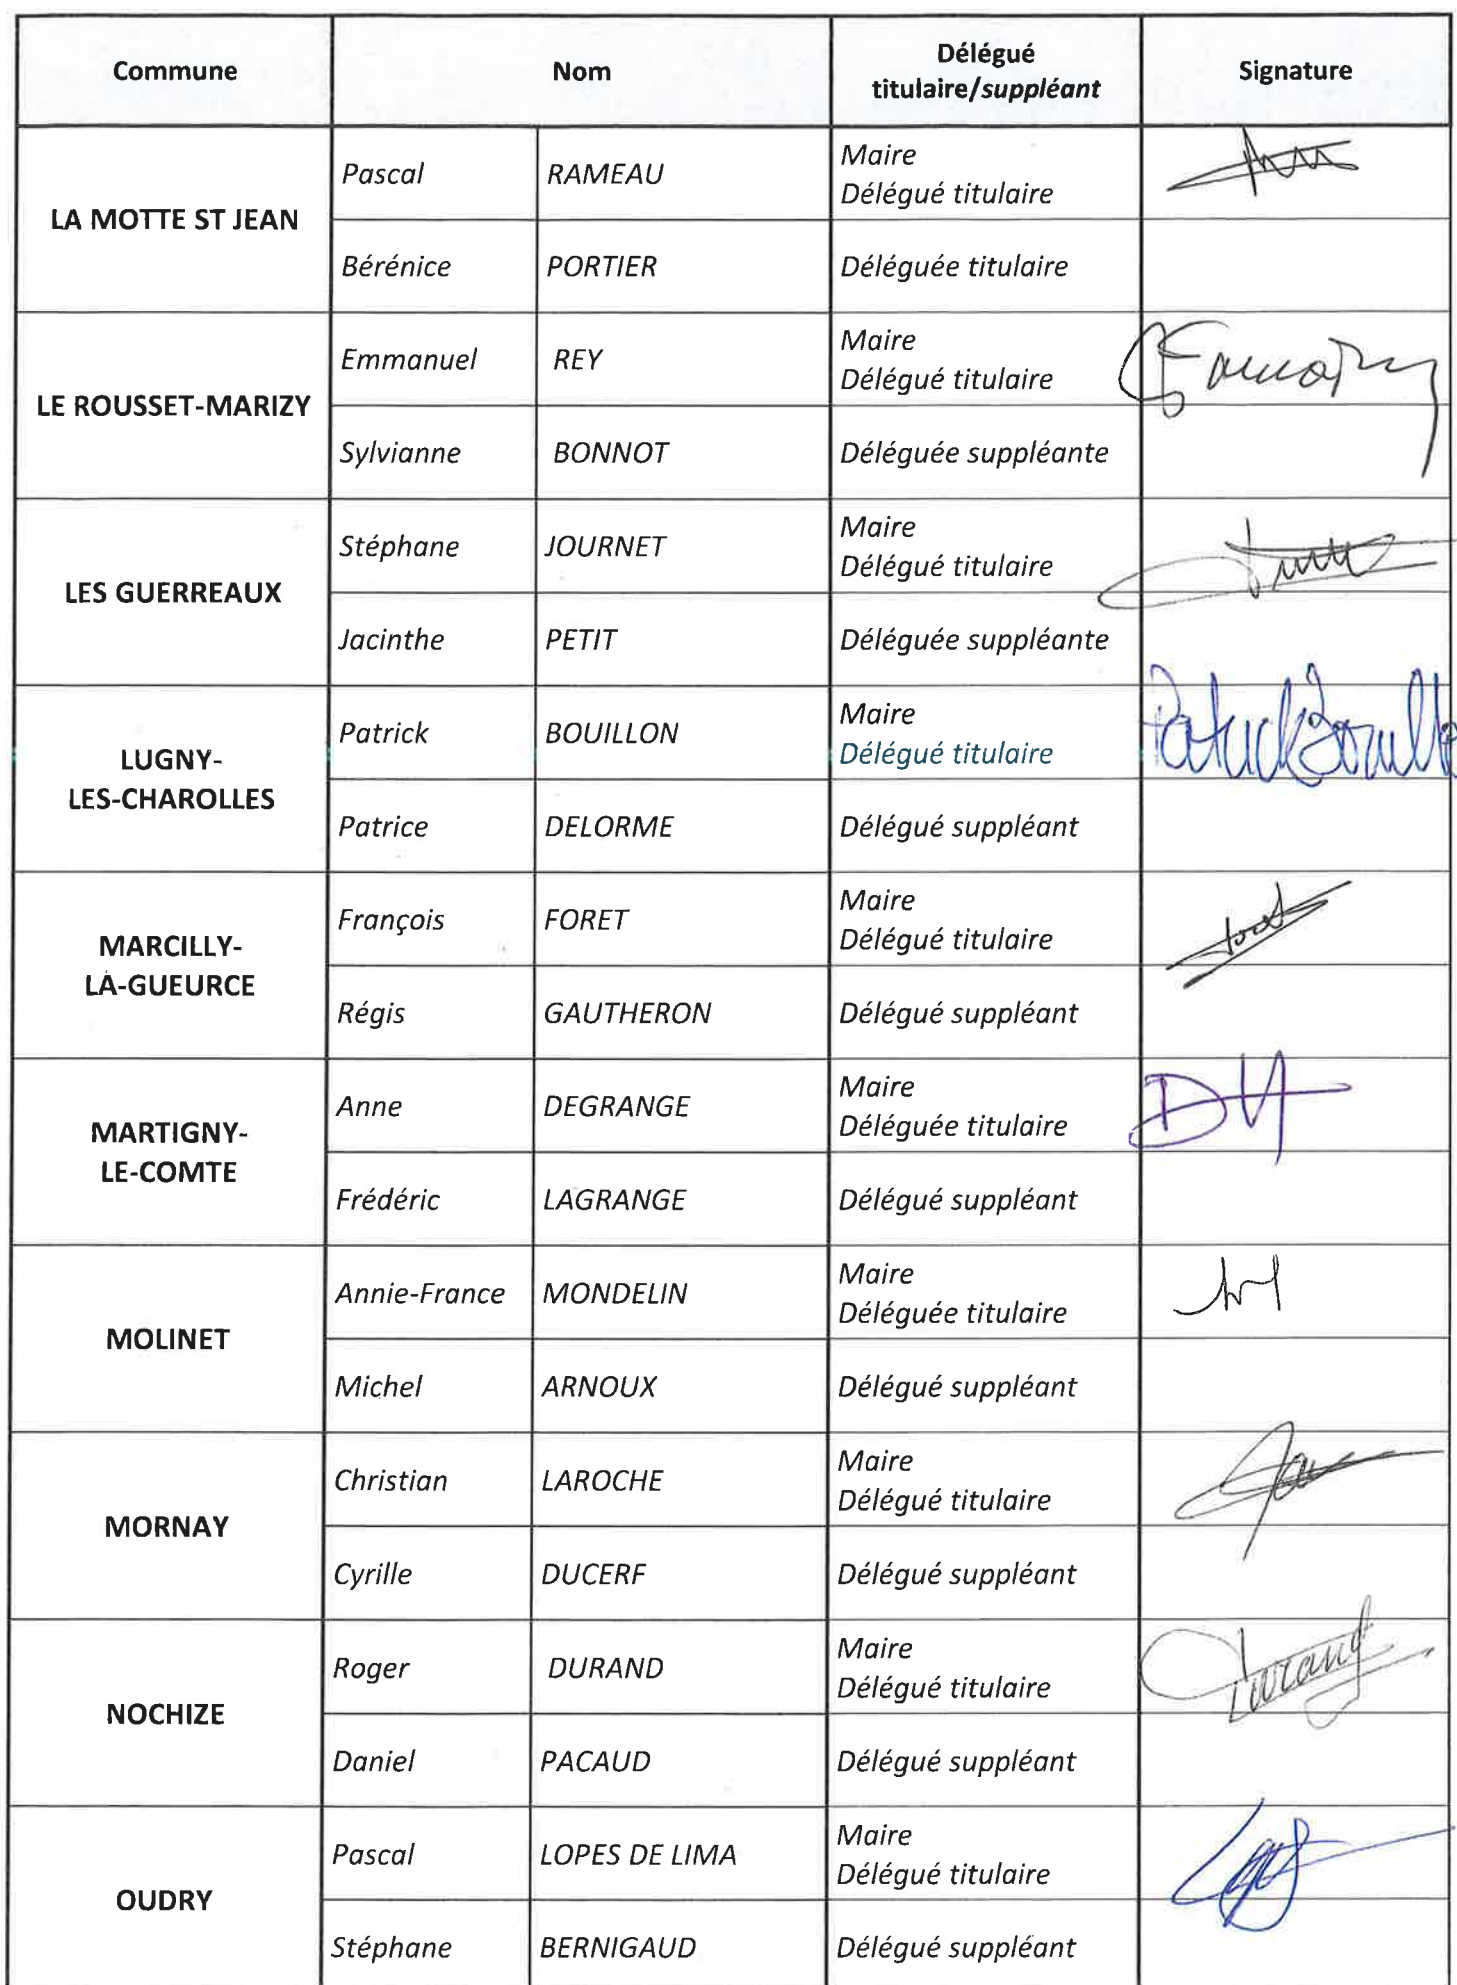 Commune Nom Délégué titulaire/suppléant Signature
LA MOTTE ST JEAN
Pascal RAMEAU Maire
Délégué titulaire
Bérénice PORTIER Déléguée titulaire
LE ROUSSET-MARIZY
Emmanuel REY Maire
Délégué titulaire
Sylvianne BONNOT Déléguée suppléante
LES GUERREAUX
Stéphane JOURNET Maire
Délégué titulaire
Jacinthe PETIT Déléguée suppléante
LUGNY-
LES-CHAROLLES
Patrick BOUILLON Maire
Délégué titulaire
Patrice DELORME Délégué suppléant
MARCILLY-
LA-GUEURCE
François FORET Maire
Délégué titulaire
Régis GAUTHERON Délégué suppléant
MARTIGNY-
LE-COMTE
Anne DEGRANGE Maire
Déléguée titulaire
Frédéric LAGRANGE Délégué suppléant
MOLINET
Annie-France MONDELIN Maire
Déléguée titulaire
Michel ARNOUX Délégué suppléant
MORNAY
Christian LAROCHE Maire
Délégué titulaire
Cyrille DUCERF Délégué suppléant
NOCHIZE
Roger DURAND Maire
Délégué titulaire
Durand
Daniel PACAUD Délégué suppléant
OUDRY
Pascal LOPES DE LIMA Maire
Délégué titulaire
Stéphane BERNIGAUD Délégué suppléant